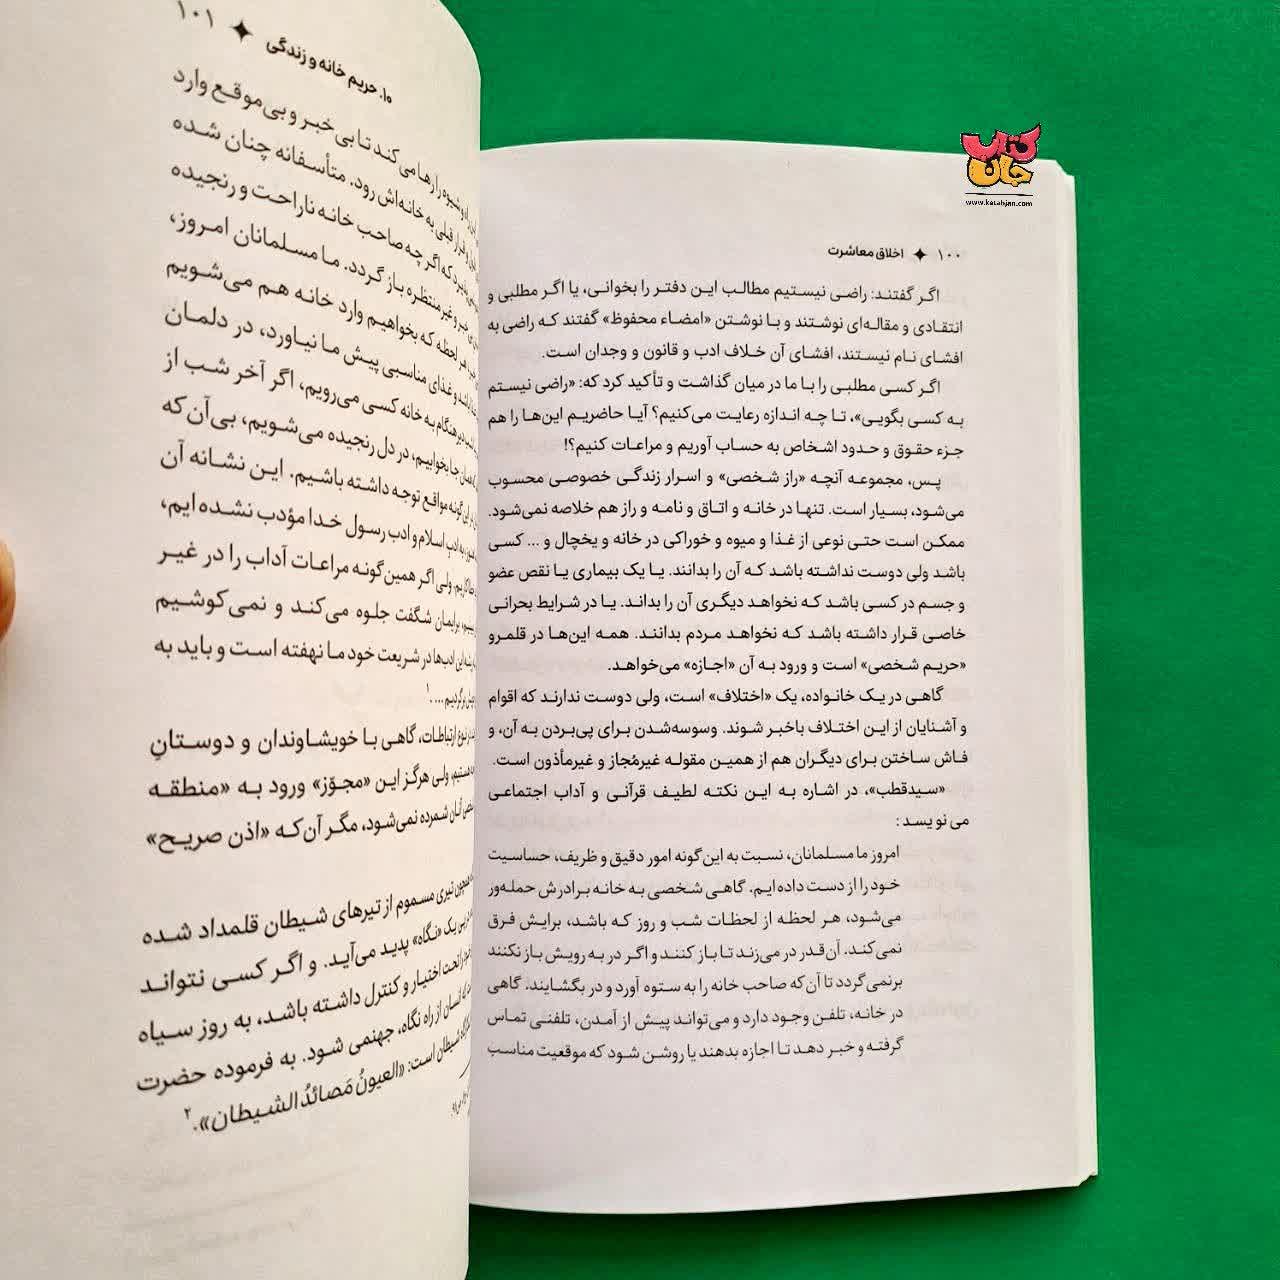 کتاب
جان
www.ketabjan.com
۱۰۰ ✦ اخلاق معاشرت
اگر گفتند: راضی نیستیم مطالب این دفتر را بخوانی، یا اگر مطلبی و
انتقادی و مقاله‌ای نوشتند و با نوشتن «امضاء محفوظ» گفتند که راضی به
افشای نام نیستند، افشای آن خلاف ادب و قانون و وجدان است.
اگر کسی مطلبی را با ما در میان گذاشت و تأکید کرد که: «راضی نیستم
به کسی بگویی»، تا چه اندازه رعایت می‌کنیم؟ آیا حاضریم این‌ها را هم
جزء حقوق و حدود اشخاص به حساب آوریم و مراعات کنیم؟!
پس، مجموعه آنچه «راز شخصی» و اسرار زندگی خصوصی محسوب
می‌شود، بسیار است. تنها در خانه و اتاق و نامه و راز هم خلاصه نمی‌شود.
ممکن است حتی نوعی از غذا و میوه و خوراکی در خانه و یخچال و ... کسی
باشد ولی دوست نداشته باشد که آن را بدانند. یا یک بیماری یا نقص عضو
و جسم در کسی باشد که نخواهد دیگری آن را بداند. یا در شرایط بحرانی
خاصی قرار داشته باشد که نخواهد مردم بدانند. همه این‌ها در قلمرو
«حریم شخصی» است و ورود به آن «اجازه» می‌خواهد.
گاهی در یک خانواده، یک «اختلاف» است، ولی دوست ندارند که اقوام
و آشنایان از این اختلاف باخبر شوند. وسوسه‌شدن برای پی‌بردن به آن، و
فاش ساختن برای دیگران هم از همین مقوله غیرمُجاز و غیرمأذون است.
«سیدقطب»، در اشاره به این نکته لطیف قرآنی و آداب اجتماعی
می نویسد:
امروز ما مسلمانان، نسبت به این‌گونه امور دقیق و ظریف، حساسیت
خود را از دست داده ایم. گاهی شخصی به خانه برادرش حمله‌ور
می‌شود، هر لحظه از لحظات شب و روز که باشد، برایش فرق
نمی‌کند. آن‌قدر در می‌زند تا باز کنند و اگر در به رویش باز نکنند
برنمی‌گردد تا آن‌که صاحب خانه را به ستوه آورد و در بگشایند. گاهی
در خانه، تلفن وجود دارد و می‌تواند پیش از آمدن، تلفنی تماس
گرفته و خبر دهد تا اجازه بدهند یا روشن شود که موقعیت مناسب
۱۰. حریم خانه و زندگی ✦ ۱۰۱
و شیوه را رها می‌کند تا بی خبر و بی‌موقع وارد
و قرار قبلی به خانه‌اش رود. متأسفانه چنان شده
که اگر چه صاحب خانه ناراحت و رنجیده
خبر و غیرمنتظره باز گردد. ما مسلمانان امروز،
هر لحظه که بخواهیم وارد خانه هم می‌شویم
و غذای مناسبی پیش ما نیاورد، در دلمان
دیرهنگام به خانه کسی می‌رویم، اگر آخر شب از
جا بخوابیم، در دل رنجیده می‌شویم، بی‌آن که
این گونه مواقع توجه داشته باشیم. این نشانه آن
به ادب اسلام و ادب رسول خدا مؤدب نشده ایم،
ولی اگر همین‌گونه مراعات آداب را در غیر
برایمان شگفت جلوه می‌کند و نمی‌کوشیم
این ادب‌ها در شریعت خود ما نهفته است و باید به
برگردیم ....۱
نوع ارتباطات، گاهی با خویشاوندان و دوستانِ
هستیم، ولی هرگز این «مجوّز» ورود به «منطقه
آنان شمرده نمی‌شود، مگر آن‌که «اذن صریح»
همچون تیری مسموم از تیرهای شیطان قلمداد شده
یک «نگاه» پدید می‌آید. و اگر کسی نتواند
تحت اختیار و کنترل داشته باشد، به روز سیاه
انسان از راه نگاه، جهنمی شود. به فرموده حضرت
شیطان است: «العیونُ مَصائدُ الشیطان».۲